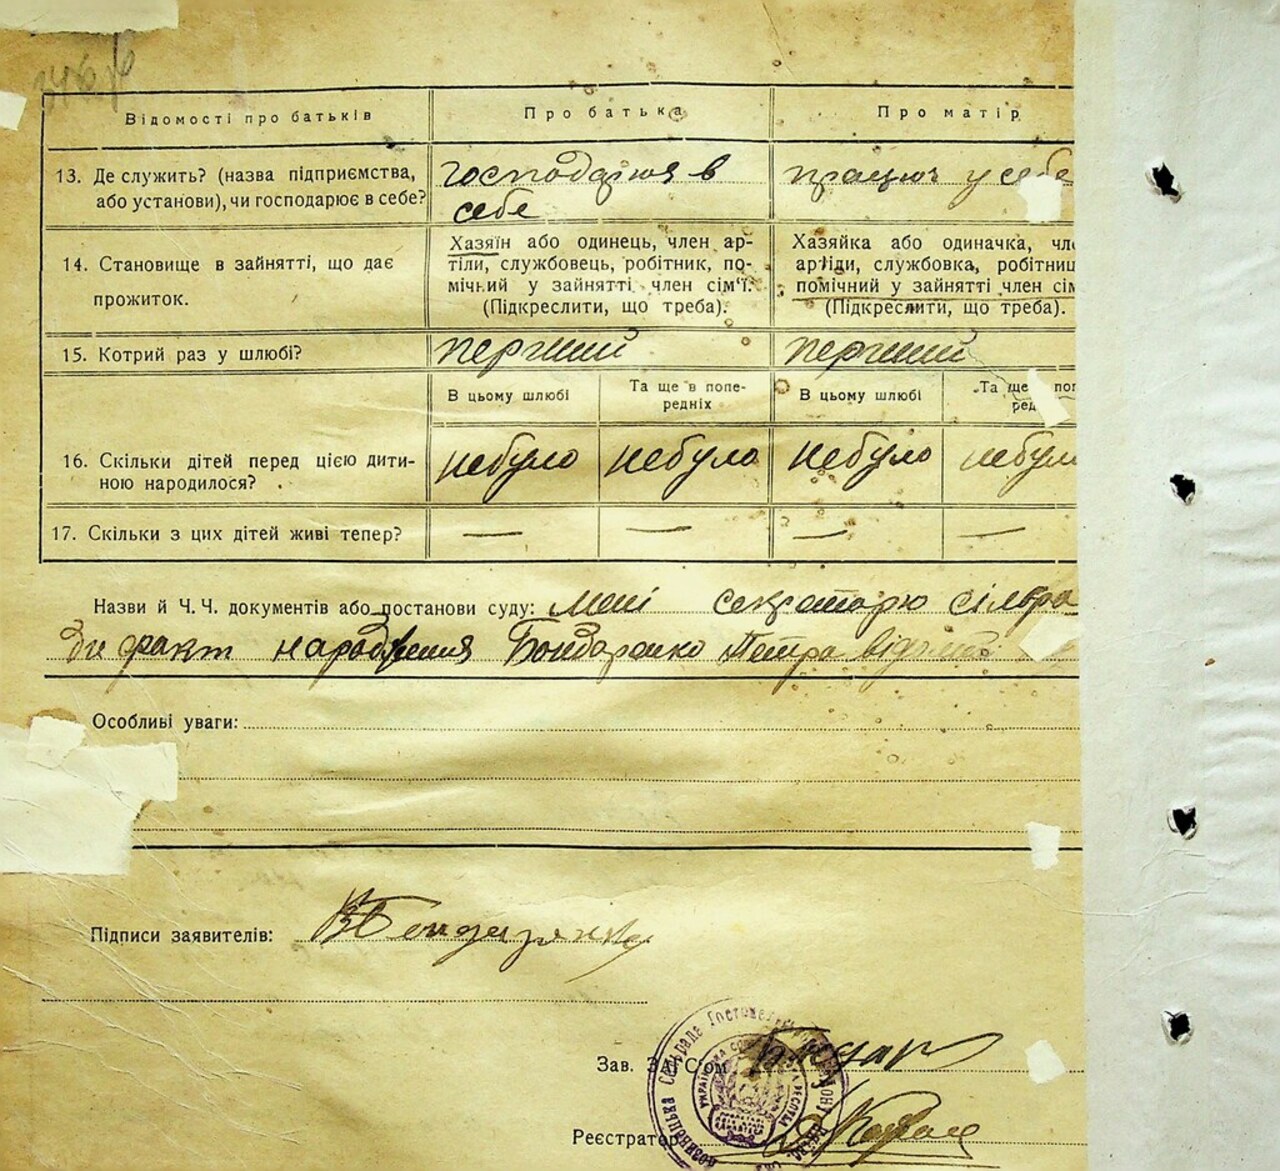 Відомості про батьків
Про батька
Про матір
13. Де служить? (назва підприємства, або установи), чи господарює в себе?
господарює в
себе
працює у себе
14. Становище в зайнятті, що дає прожиток.
Хазяїн або одинець, член ар-
тіли, службовець, робітник, по-
мічний у зайнятті член сім'ї.
(Підкреслити, що треба).
Хазяйка або одиначка, чл
артіди, службовка, робітниц
помічний у зайнятті член сім
(Підкреслити, що треба).
15. Котрий раз у шлюбі?
перший
перший
В цьому шлюбі
Та ще в попе-
редніх
В цьому шлюбі
Та ще поп
ред
16. Скільки дітей перед цією дити-
ною народилося?
небуло
небуло
небуло
небуло
17. Скільки з цих дітей живі тепер?
—
—
—
—
Назви й Ч. Ч. документів або постанови суду: Мені секретарю сільра
ди факт народження Бондаренко Петра відомо
Особливі уваги:
Підписи заявителів: В Бондаренко
Зав. ЗАГС'ом
Реєстратор